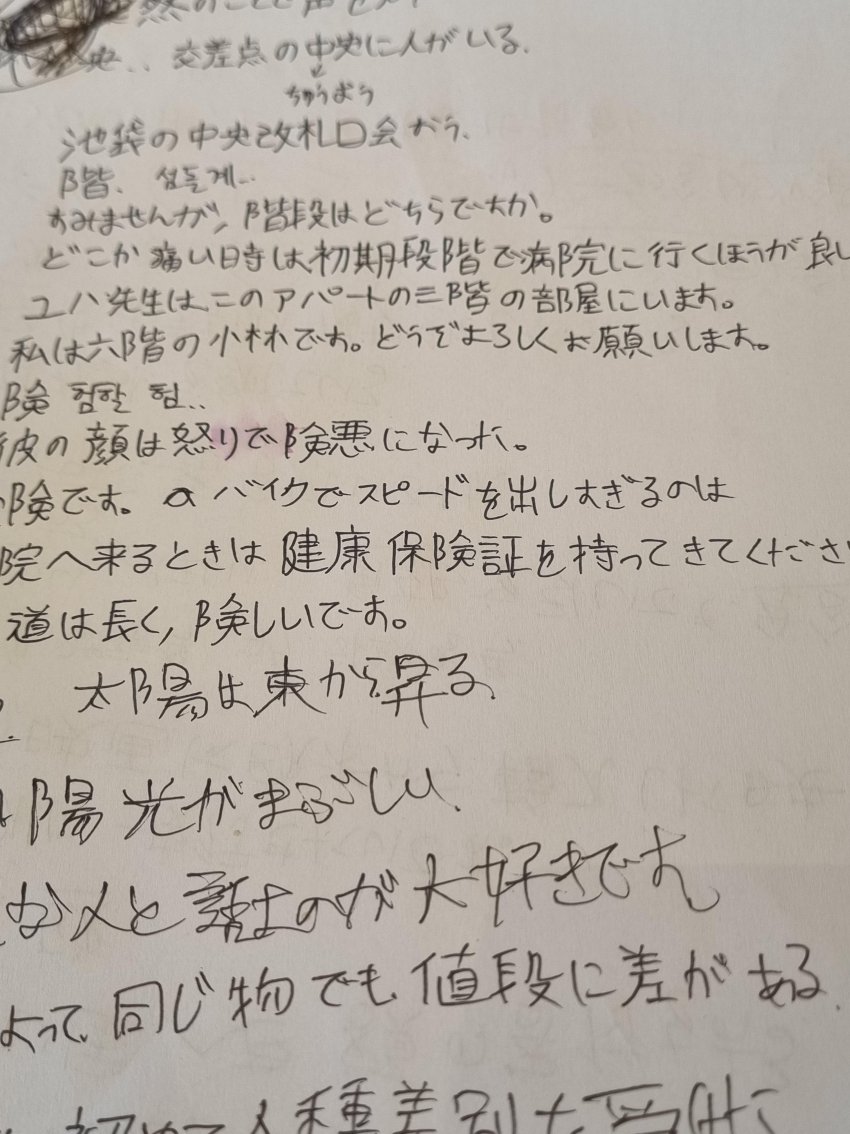 然のことで声を
央、、交差点の中央に人がいる.
ちゅうよう
池袋の中央改札口会おう、
階、 섬돌계..
すみませんが, 階段はどちらですか。
どこか痛い時は初期段階で病院に行くほうが良し
ユハ先生はこのアパートの三階の部屋にいます。
私は六階の小林です。どうぞよろしくお願いします。
険 험할 험..
彼の顔は怒りで険悪になった。
険です。 a バイクでスピードを出しすぎるのは
院へ来るときは健康保険証を持ってきてくださ
道は長く, 険しいです。
太陽は東から昇る.
陽光がまぶしい.
な人と話すのが大好きです、
よって、同じ物でも値段に差がある.
初めて人種差別を受けた